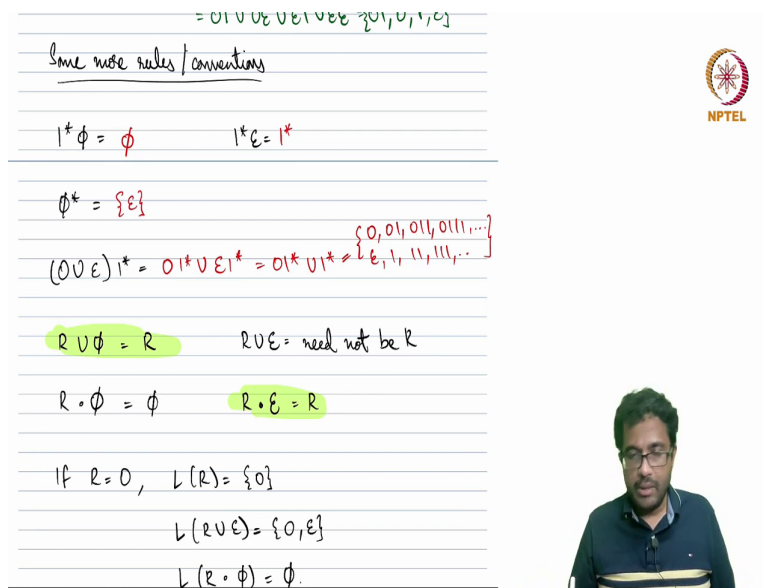 = 01 ∪ 0ε ∪ ε1 ∪ εε {01, 0, 1, ε}
Some more rules/conventions
1*ϕ = ϕ 1*ε = 1*
NPTEL
ϕ* = {ε}
(0∪ε)1* = 01* ∪ ε1* = 01* ∪ 1* = {0, 01, 011, 0111, ...
ε, 1, 11, 111, ..}
R ∪ ϕ = R R∪ε = need not be R
R • ϕ = ϕ R • ε = R
If R = 0, L(R) = {0}
L(R∪ε) = {0, ε}
L(R • ϕ) = ϕ.